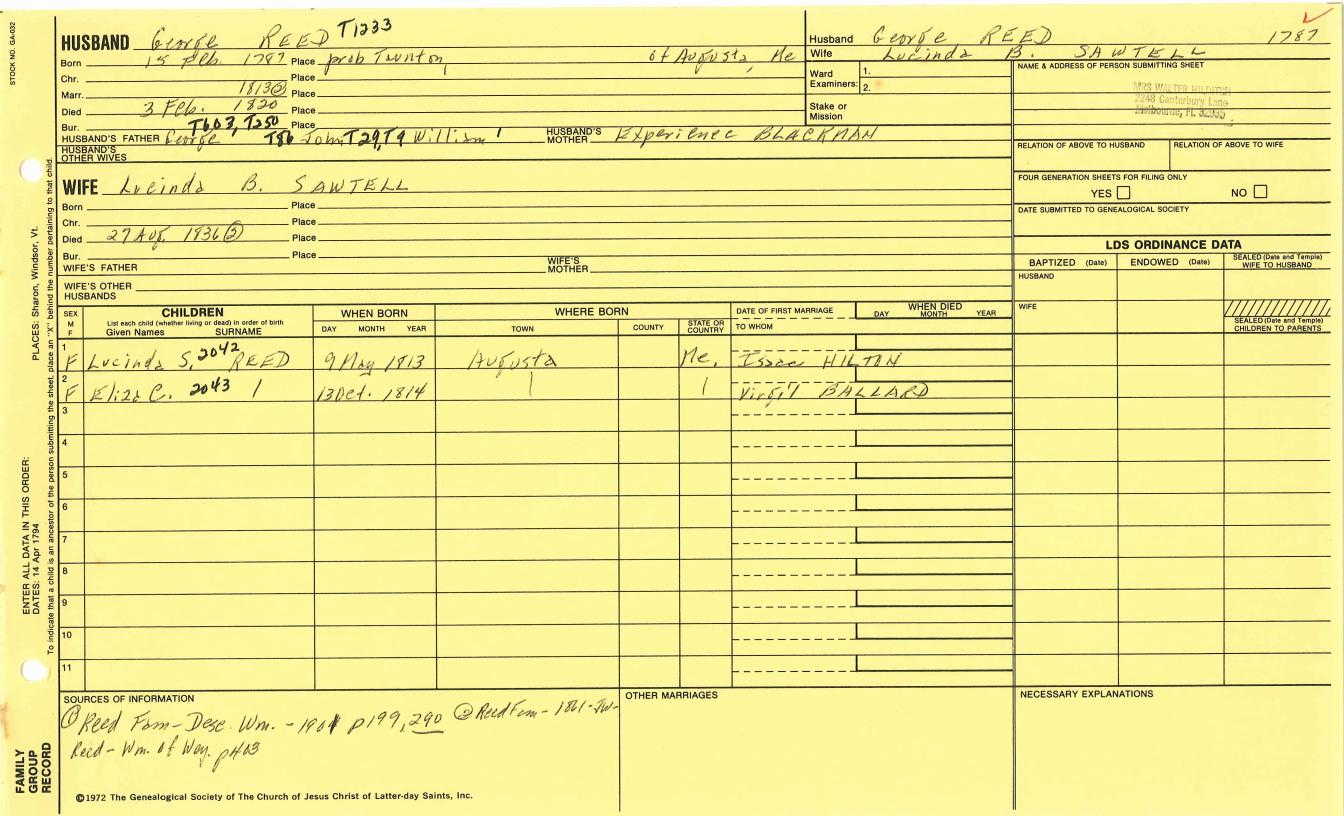 STOCK NO. GA-032
HUSBAND George REED T1233
Husband George REED 1787
Born 15 Feb. 1787 Place prob Taunton, of Augusta, Me
Wife Lucinda B. SAWTELL
Chr. Place
Marr. 1813② Place
Died 3 Feb. 1820 Place
Bur. Place
T603, T250
HUSBAND'S FATHER George T86 John T29, T9 William 1
HUSBAND'S MOTHER Experience BLACKMAN
HUSBAND'S OTHER WIVES
Ward Examiners: 1.
2.
Stake or Mission
NAME & ADDRESS OF PERSON SUBMITTING SHEET
MRS WALTER HILDITCH
2248 Canterbury Lane
Melbourne, Fl. 32935
RELATION OF ABOVE TO HUSBAND
RELATION OF ABOVE TO WIFE
FOUR GENERATION SHEETS FOR FILING ONLY
YES NO
DATE SUBMITTED TO GENEALOGICAL SOCIETY
WIFE Lucinda B. SAWTELL
Born Place
Chr. Place
Died 27 Aug. 1836② Place
Bur. Place
WIFE'S FATHER
WIFE'S MOTHER
WIFE'S OTHER HUSBANDS
LDS ORDINANCE DATA
BAPTIZED (Date) ENDOWED (Date) SEALED (Date and Temple) WIFE TO HUSBAND
HUSBAND
WIFE
SEALED (Date and Temple) CHILDREN TO PARENTS
SEX M F
CHILDREN
List each child (whether living or dead) in order of birth
Given Names SURNAME
WHEN BORN
DAY MONTH YEAR
WHERE BORN
TOWN COUNTY STATE OR COUNTRY
DATE OF FIRST MARRIAGE
TO WHOM
WHEN DIED
DAY MONTH YEAR
1 F Lucinda S. 2042 REED 9 May 1813 Augusta Me. Isaac HILTON
2 F Eliza C. 2043 | 13 Oct. 1814 | | Virgil BALLARD
3
4
5
6
7
8
9
10
11
SOURCES OF INFORMATION
① Reed Fam - Desc. Wm. - 1901 p199, 290 ② Reed Fam - 1861 - JW-
Reed - Wm. of Wey. p403
OTHER MARRIAGES
NECESSARY EXPLANATIONS
©1972 The Genealogical Society of The Church of Jesus Christ of Latter-day Saints, Inc.
FAMILY GROUP RECORD
ENTER ALL DATA IN THIS ORDER:
DATES: 14 Apr 1794
PLACES: Sharon, Windsor, Vt.
To indicate that a child is an ancestor of the person submitting the sheet, place an "X" behind the number pertaining to that child.